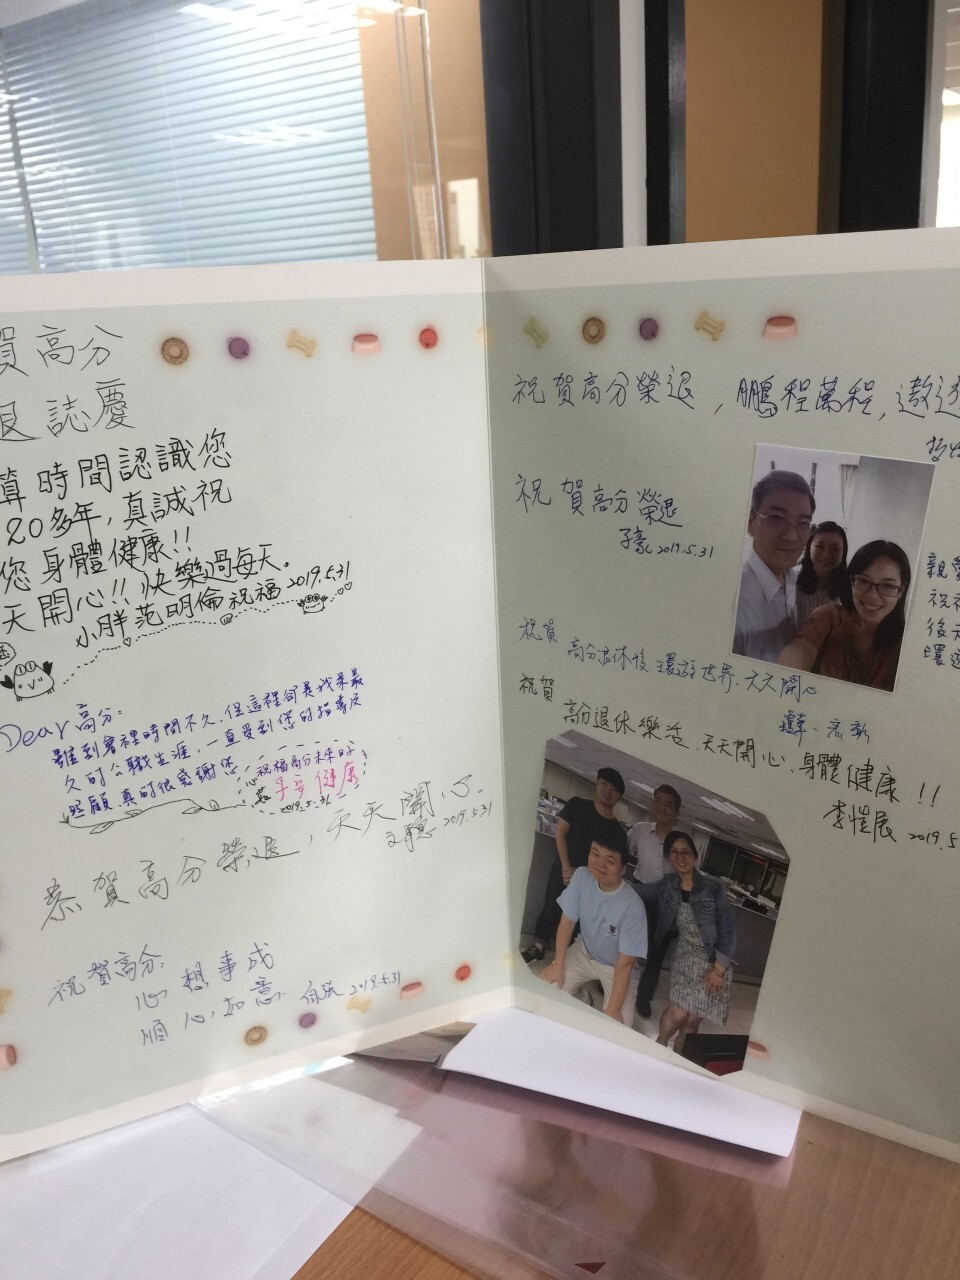 賀高分
退誌慶
算時間認識您
20多年,真誠祝
您身體健康!!
天開心!!快樂過每天。
小胖范明倫祝福 2019.5.31
Dear 高分:
雖到會裡時間不久,但這裡卻是我來最
久的公職生涯,一直受到您的指導及
照顧真的很感謝您
祝福高分未來時
平安健康
2019.5.31
恭賀高分榮退,天天開心。
2019.5.31
祝賀高分:
心想事成
順心如意 2019.5.31
祝賀高分榮退,鵬程萬程,遨遊
祝賀高分榮退
子豪 2019.5.31
祝賀
高分退休後環遊世界、天天開心
祝賀
高分退休樂活、天天開心、身體健康!!
李愷展 2019.5
親愛
祝福
後天
環遊